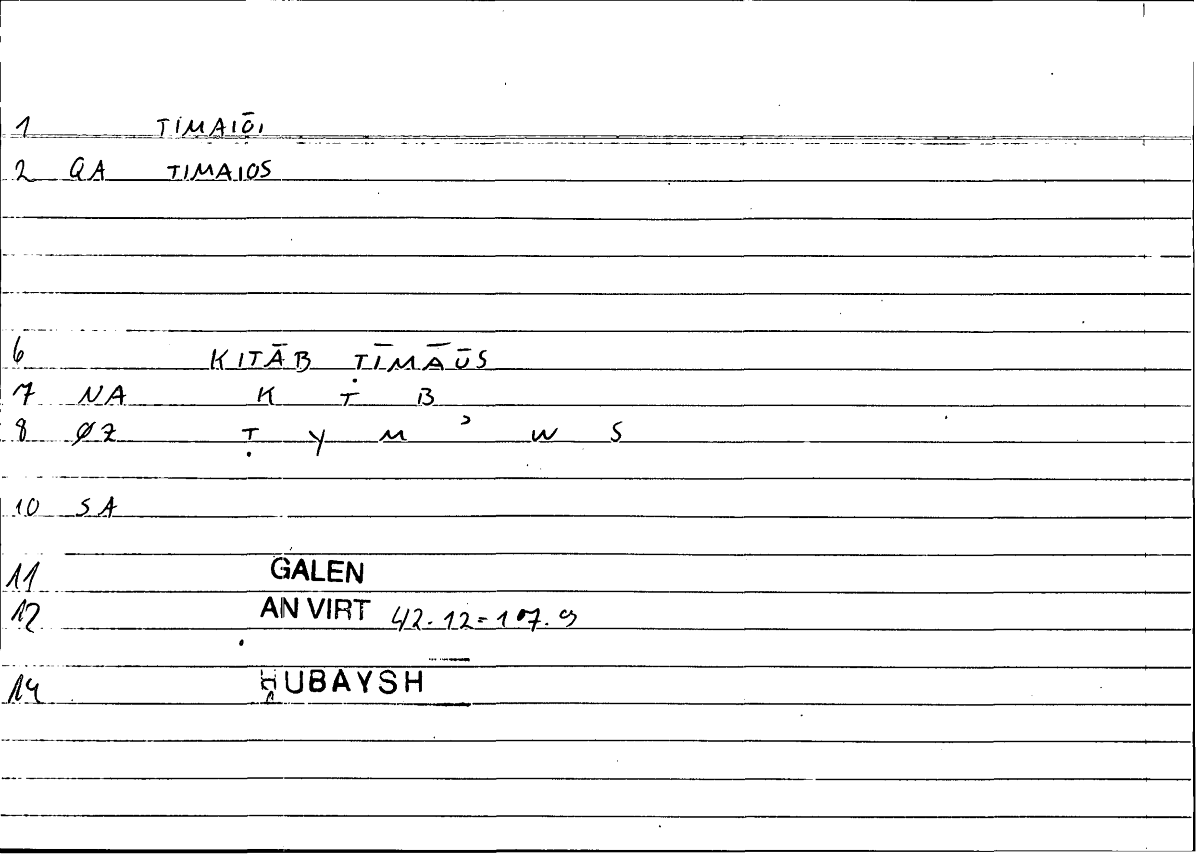 1 TIMAIŌI
2 QA TIMAIOS
6 KITĀB TĪMĀŪS
7 NA K T B
8 ØZ Ṭ Y M ʾ W S
10 SA
11 GALEN
12 AN VIRT 42.12=107.9
14 ḤUBAYSH